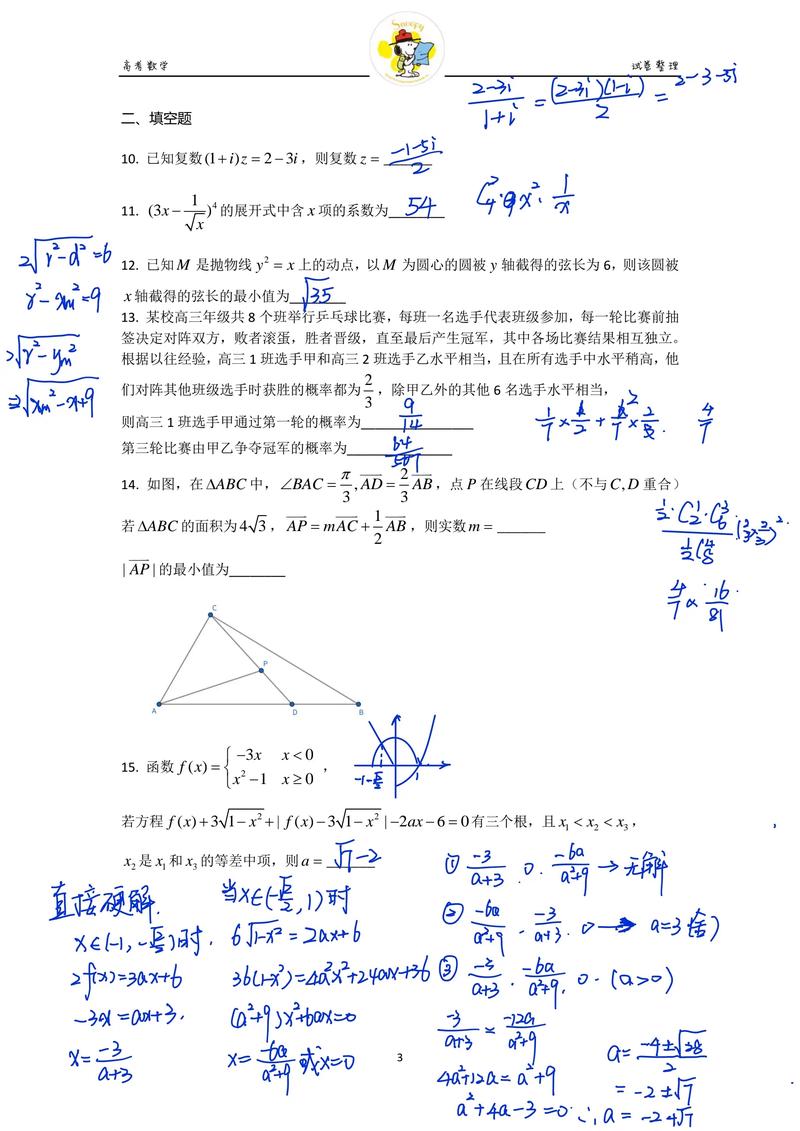 Snoopy
高考数学 试卷整理
二、填空题
(2-3i)/(1+i) = (2-3i)(1-i)/2 = 2-3-5i
10. 已知复数(1+i)z = 2-3i，则复数 z = (-1-5i)/2
11. (3x - 1/√x)⁴ 的展开式中含 x 项的系数为 54
12. 已知 M 是抛物线 y² = x 上的动点，以 M 为圆心的圆被 y 轴截得的弦长为 6，则该圆被
x 轴截得的弦长的最小值为 √35
2√(r²-d²)=6
r²-xm²=9
2√(r²-ym²)
√(xm²-x+9)
13. 某校高三年级共 8 个班举行乒乓球比赛，每班一名选手代表班级参加，每一轮比赛前抽
签决定对阵双方，败者滚蛋，胜者晋级，直至最后产生冠军，其中各场比赛结果相互独立。
根据以往经验，高三 1 班选手甲和高三 2 班选手乙水平相当，且在所有选手中水平稍高，他
们对阵其他班级选手时获胜的概率都为 2/3，除甲乙外的其他 6 名选手水平相当，
则高三 1 班选手甲通过第一轮的概率为 9/14
第三轮比赛由甲乙争夺冠军的概率为 64/567
14. 如图，在 ΔABC 中，∠BAC = π/3, AD = 2/3 AB，点 P 在线段 CD 上（不与 C, D 重合）
若 ΔABC 的面积为 4√3，AP = mAC + 1/2 AB，则实数 m = ______
| AP | 的最小值为________
4/7 × 16/81
C
P
A
D
B
15. 函数 f(x) = { -3x x<0
x²-1 x≥0 ，
若方程 f(x)+3√(1-x²)+| f(x)-3√(1-x²) |-2ax-6=0 有三个根，且 x₁ < x₂ < x₃，
x₂ 是 x₁ 和 x₃ 的等差中项，则 a = √7-2
直接硬解.
x∈(-1, -√2/2)时,
2f(x)=2ax+6
-3x=ax+3.
x=-3/(a+3)
当x∈(-√2/2, 1)时
6√(1-x²)=2ax+6
36(1-x²)=4a²x²+24ax+36
(a²+9)x²+6ax=0
x=-6a/(a²+9) 或x=0
① -3/(a+3) . 0 . -6a/(a²+9) → 无解
② -6a/(a²+9) . -3/(a+3) . 0 → a=3(舍)
③ -3/(a+3) . -6a/(a²+9) . 0 . (a>0)
-3/(a+3) = -12a/(a²+9)
4a²+12a=a²+9
a²+4a-3=0
a=(-4±√28)/2
=-2±√7
∴a=-2+√7
3